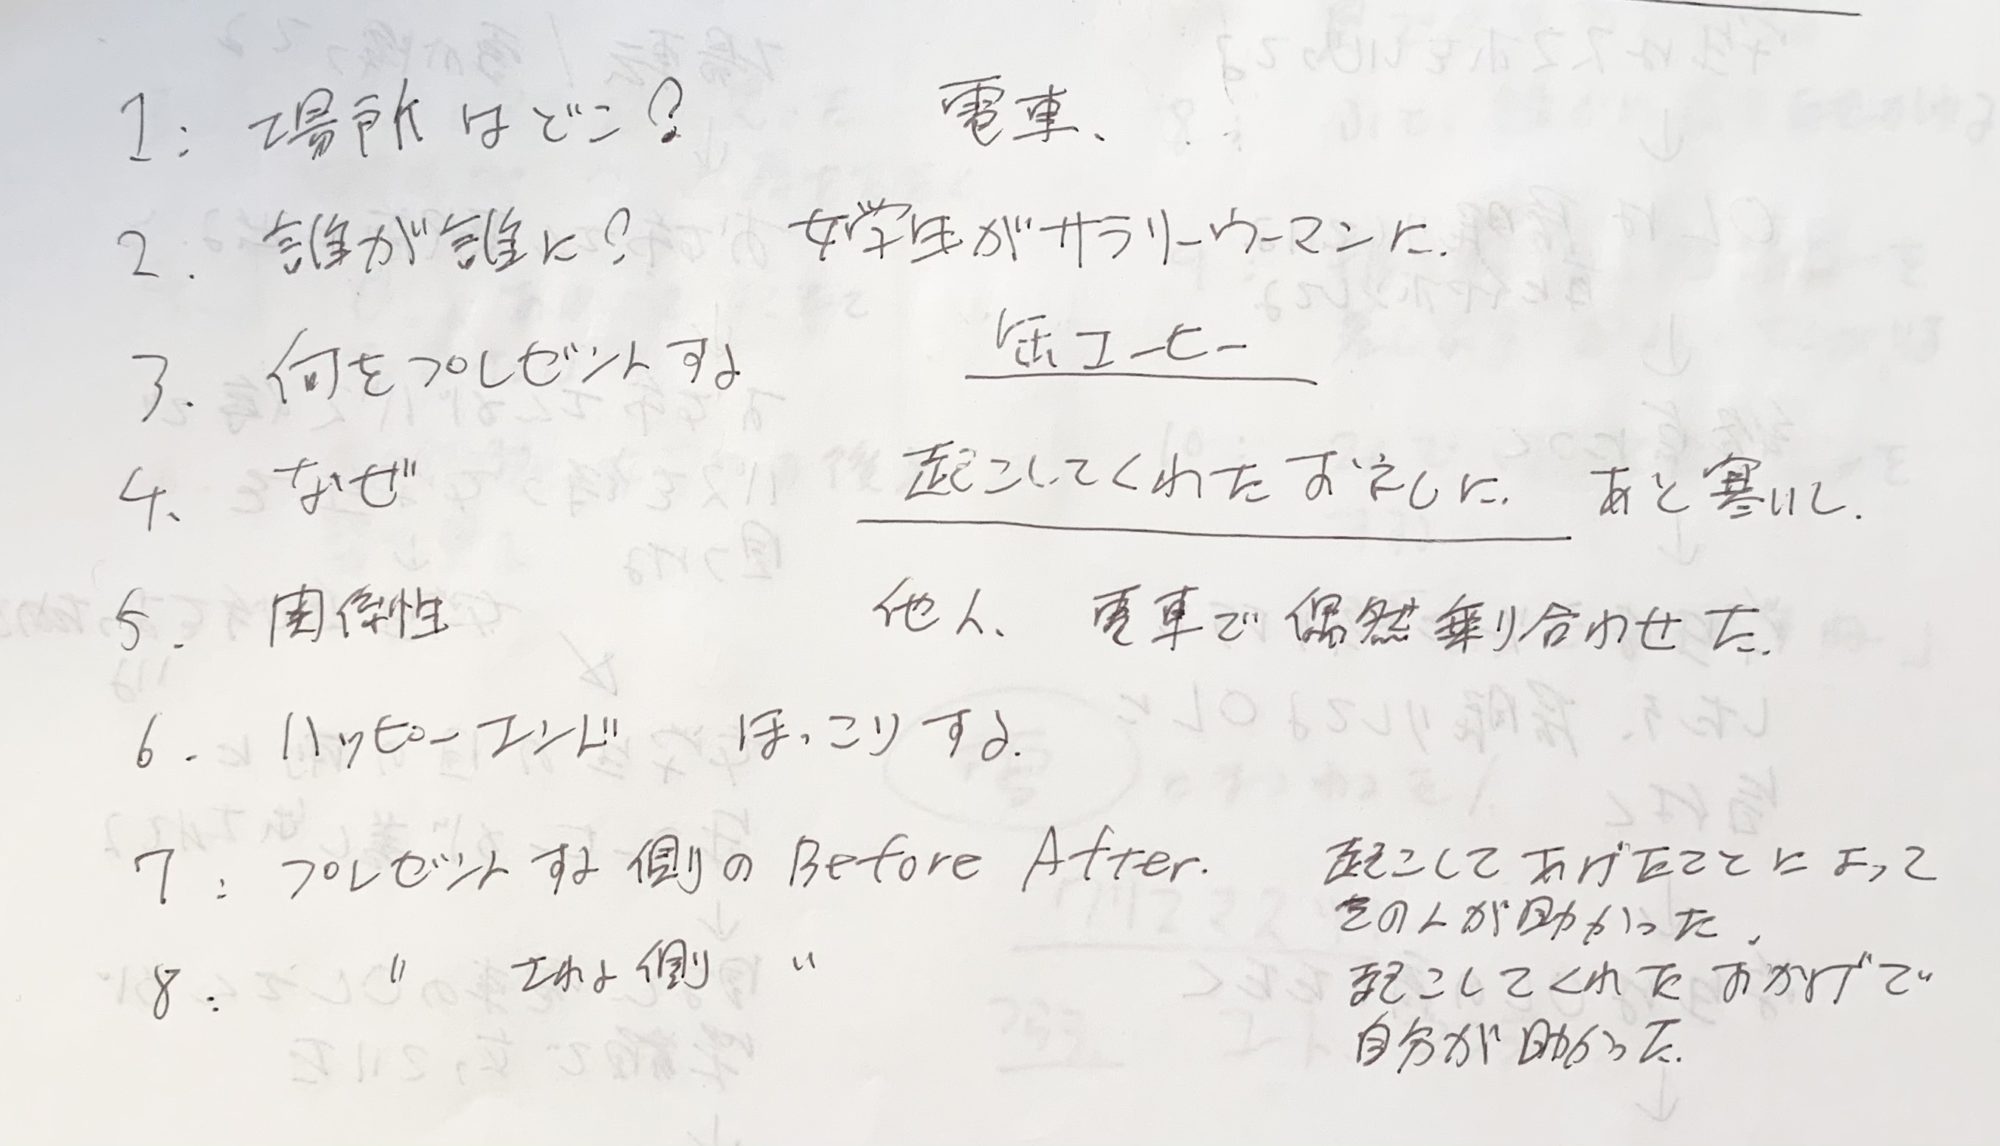 1: 場所はどこ? 電車、
2. 誰が誰に? 女学生がサラリーウーマンに.
3. 何をプレゼントする 缶コーヒー
4、 なぜ 起こしてくれたおネしに. あと寒いし.
5. 関係性 他人、 電車で偶然乗り合わせた.
6. ハッピーエンド ほっこりする.
7: プレゼントする側のBefore After. 起こしてあげたことによって
その人が助かった.
8: 〃 される側 〃 起こしてくれたおかげで
自分が助かった.